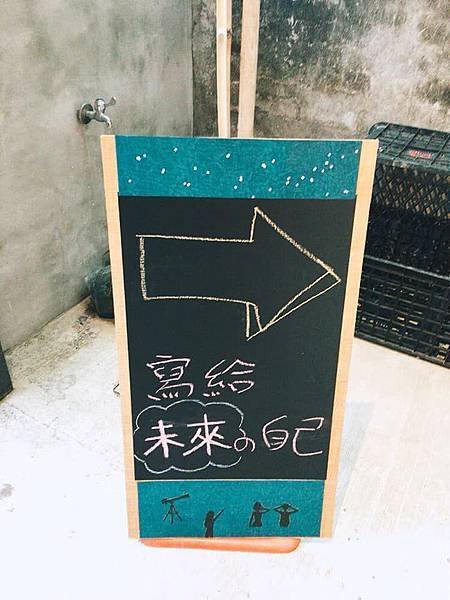 寫給
未來の自己